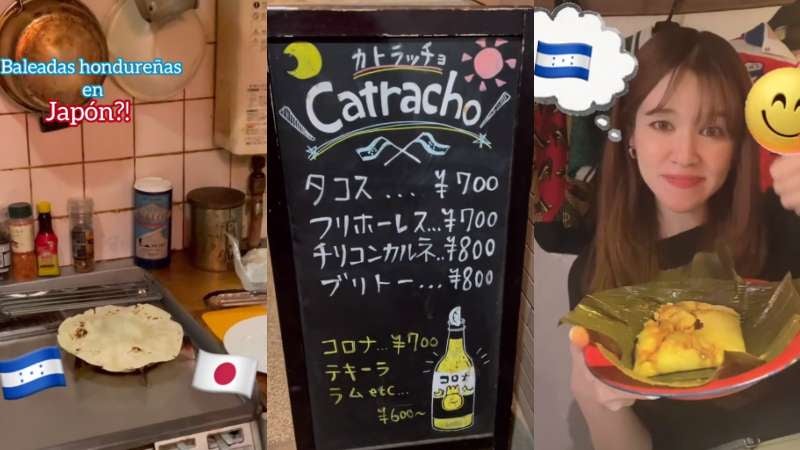 Baleadas hondureñas
en
Japón?!
カトラッチョ
Catracho
タコス...¥700
フリホーレス...¥700
チリコンカルネ...¥800
ブリトー...¥800
コロナ...¥700
テキーラ
ラム etc...
¥600~
コロナ